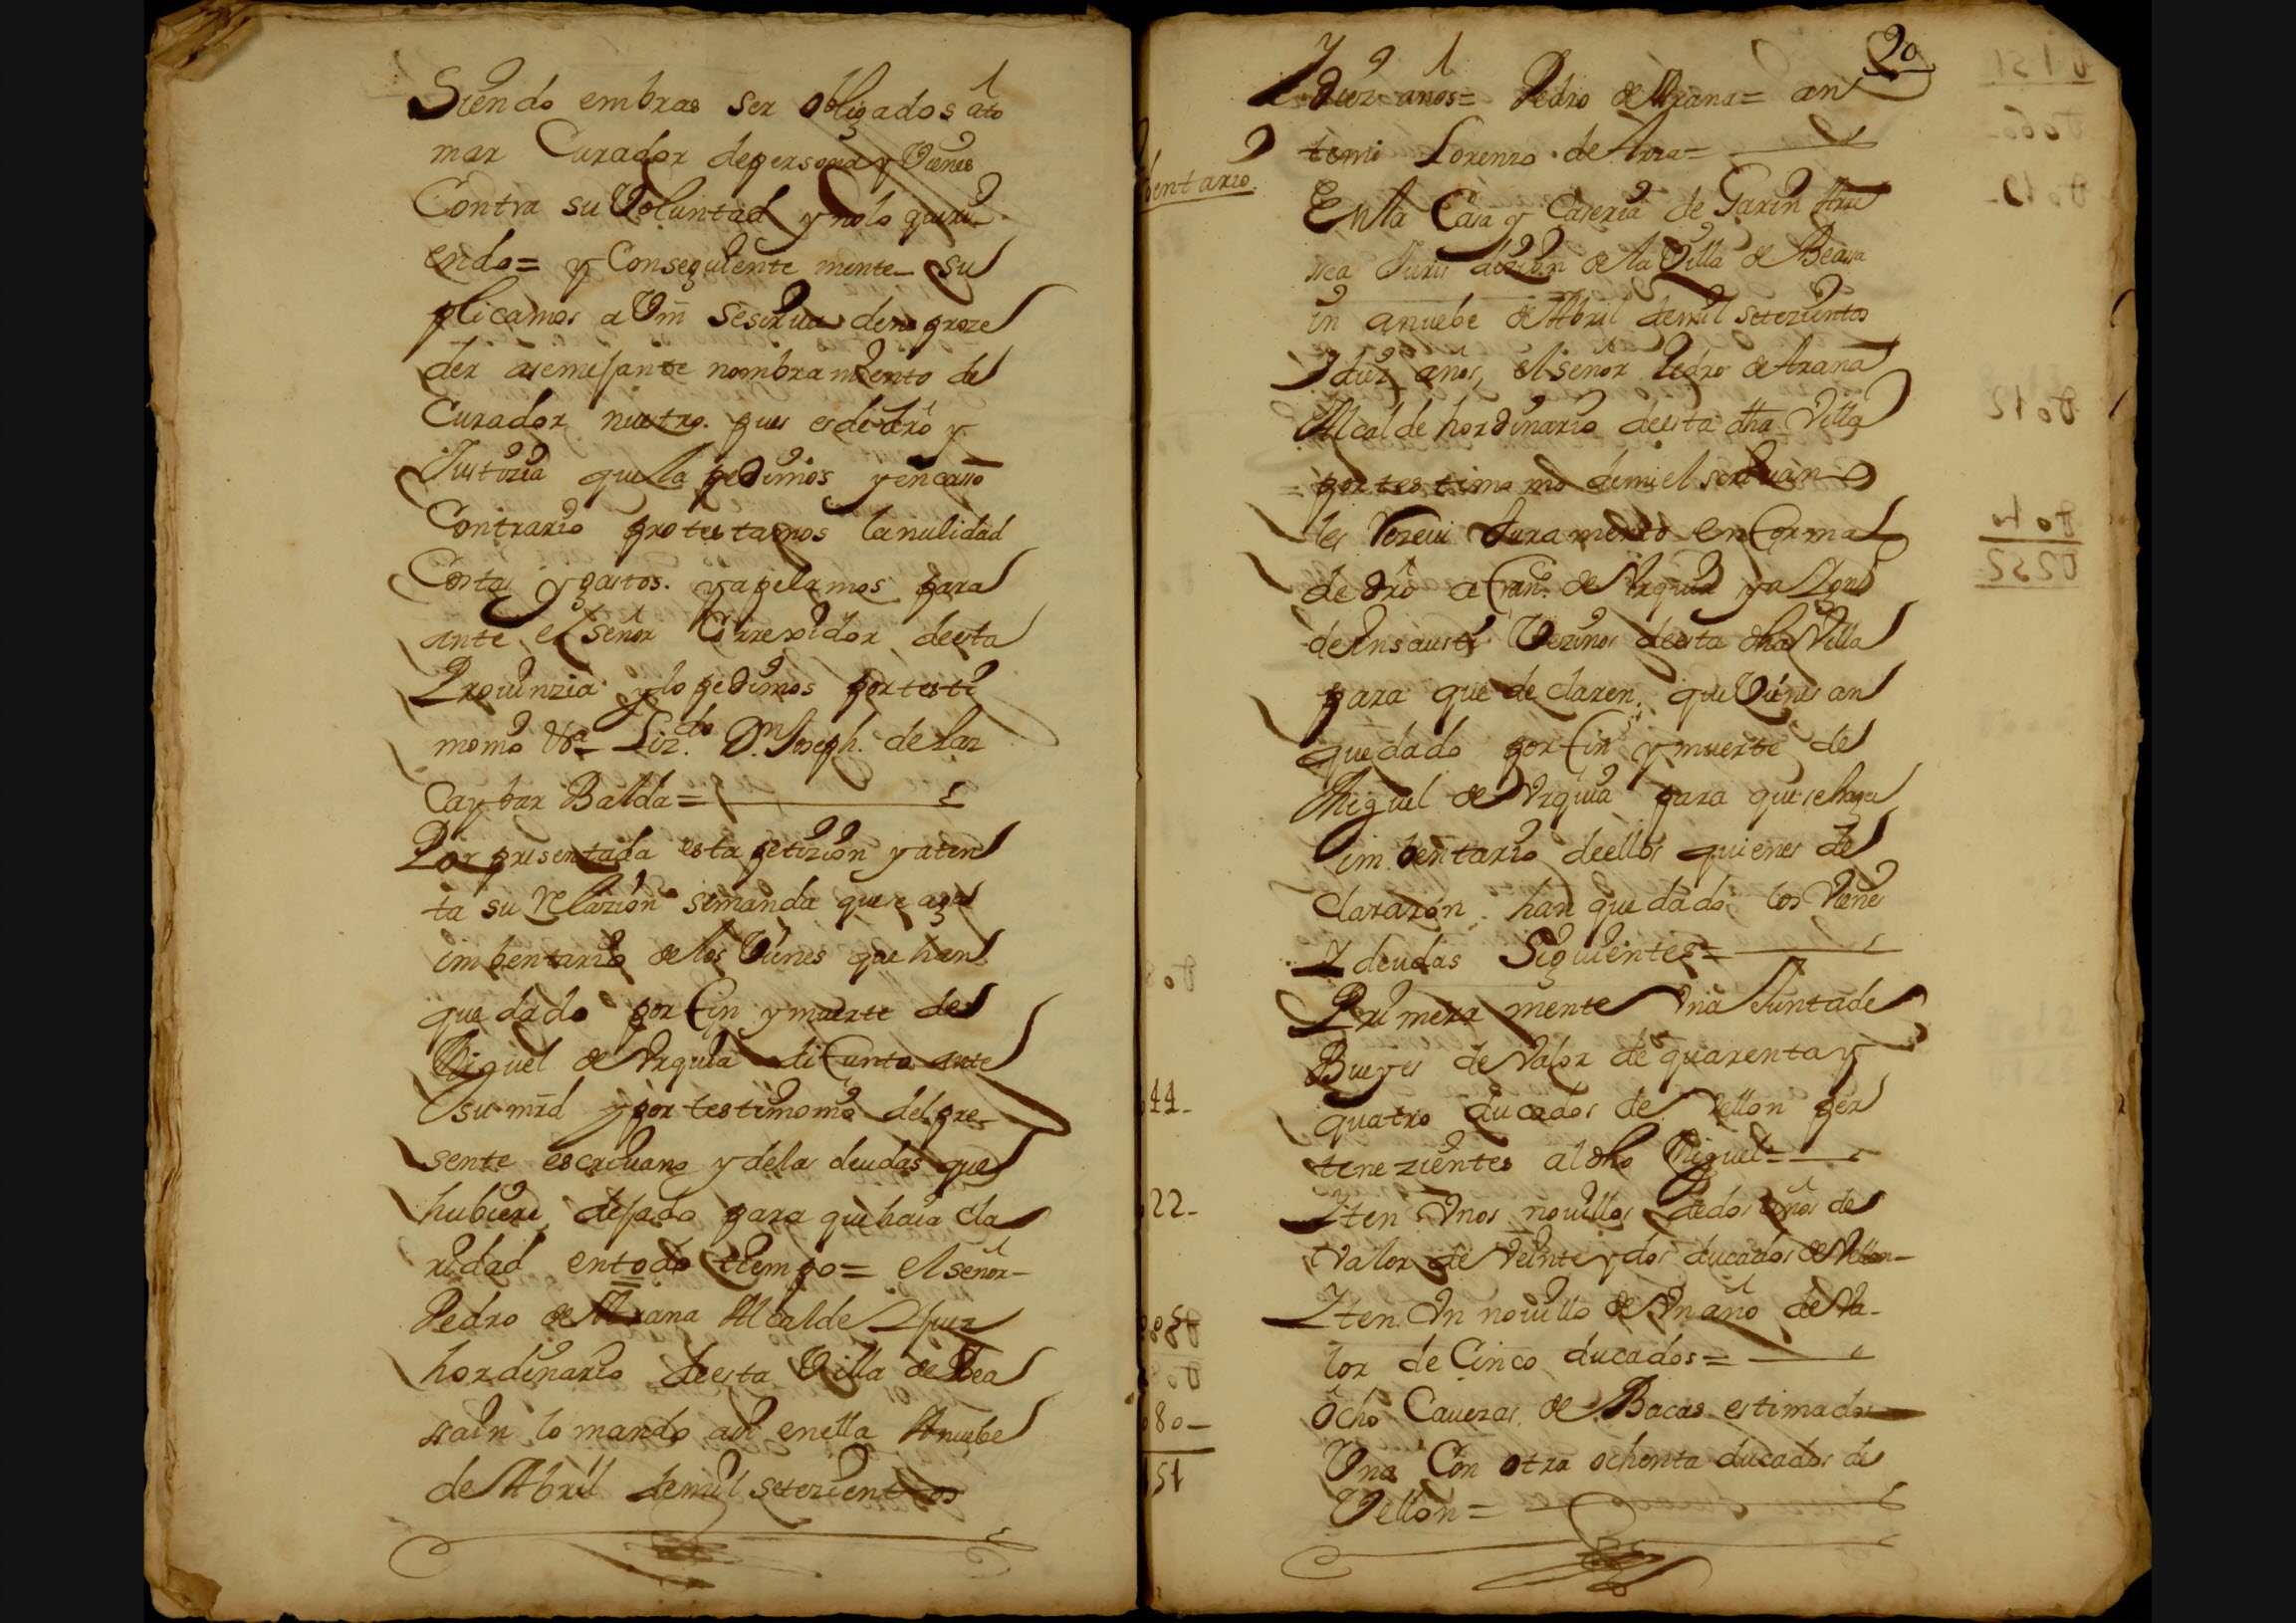 Siendo embras ser obligados ato
mar Curador depersona y Vienes
Contra su Voluntad y nolo quiri
endo= y Conseguiente mente su
plicamos a Vm̃ sesirua deno proze
der asemejante nombramiento de
Curador nuestro. pues esdedro y
Justizia quela pedimos y encaso
Contrario protestamos lanulidad
Costas y gastos. yapelamos para
ante el señor Correxidor deesta
Prouinzia y lo pedimos portesti
monio Liz.do D.n Joseph. delaz
Caybar Balda=
Por presentada esta petizion y aten
ta su relazion semanda que se aga
imbentario de los Vienes que han
quedado por fin y muerte de
Miguel de Vrquia difunto ante
su mrd y por testimonio del pre
sente escriuano y delas deudas que
hubiere dejado para quehaia cla
ridad entodo tiempo= el señor
Pedro de Arana Alcalde Y juez
hordinario deesta Villa de Bea
sain lo mando asi enella Anuebe
de Abril demil setezientos
20
Y diez años= Pedro de Arana= an
temi Lorenzo de Arza=
bentario.
Enla Casa y Caseria de Garin
rea Juris dizion de la Villa de Beasa
in anuebe de Abril demil setezientos
Y diez años, el señor Pedro de Arana
Alcalde hordinario deesta dha Villa
por testimonio demi el scriuano
les Rezeui Juramento en forma
de dro a Fran.co de Vrquia y a
de Insausti Vezinos deesta dha Villa
para que declaren que Vienes an
quedado por fin y muerte de
Miguel de Vrquia para quesehaga
imbentario deellos quienes de
clarazon han quedado los Vienes
Y deudas Siguientes=
Primera mente Vna Junta de
Bueyes de Valor de quarenta y
44
quatro ducados de Vellon per
tenezientes al dho Miguel=
22
Yten Vnos nouillos dedos años de
Valor de Veinte y dos ducados de Vellon
Yten Vn nouillo de Vn año de Va
lor de Cinco ducados=
80
ocho Cauezas de Bacas estimados
Vna Con otra ochenta ducados de
151
Vellon=